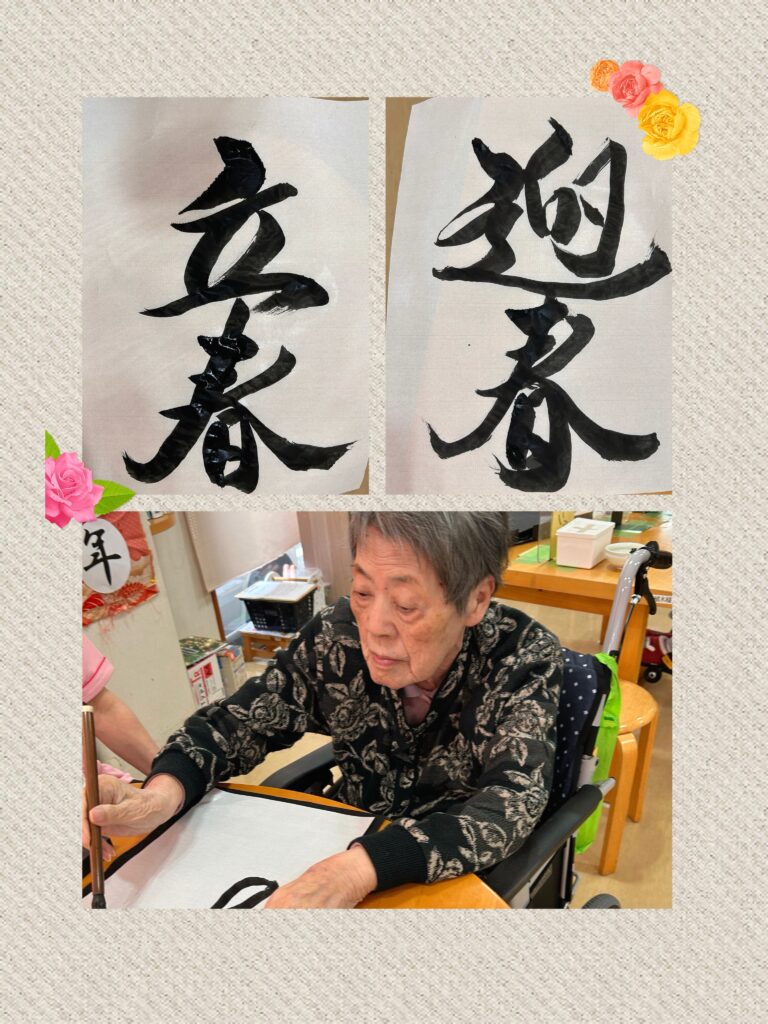 立春
迎春
年